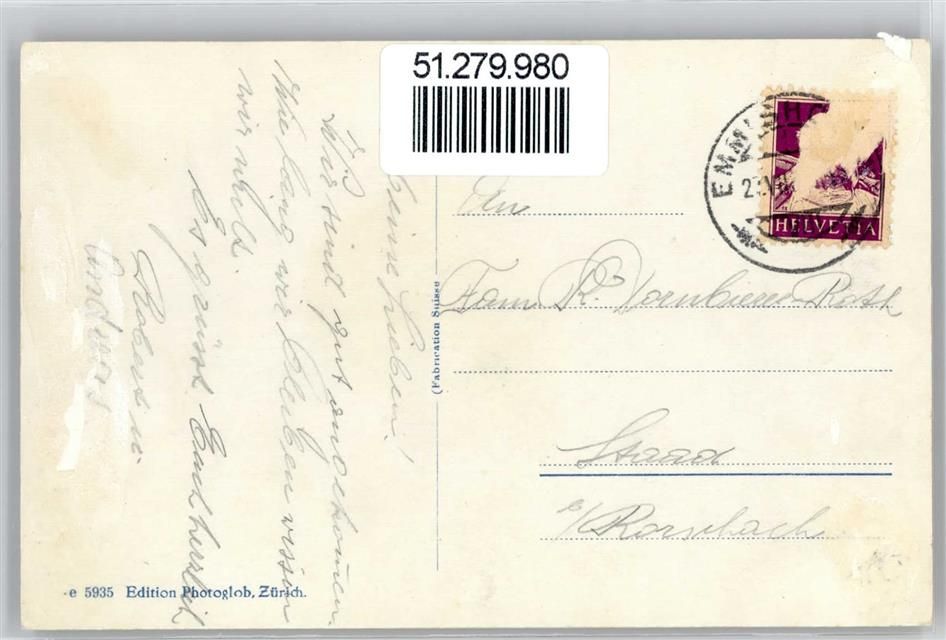 51.279.980
Meine Lieben!
Wir sind gut angekommen.
Wie lang wir bleiben wissen
wir nicht.
Es grüsst Euch herzlich
Robert u.
An
Fam R. Dornbierer-Roth
Staad
b/Rorschach
EMM
HELVETIA
(Fabrication Suisse
e 5935 Edition Photoglob, Zürich.